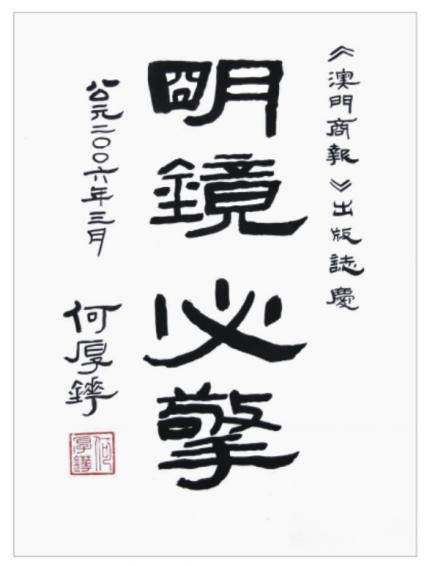 《澳門商報》出版誌慶
朙鏡必擎
公元二〇〇六年三月
何厚鏵
何厚鏵